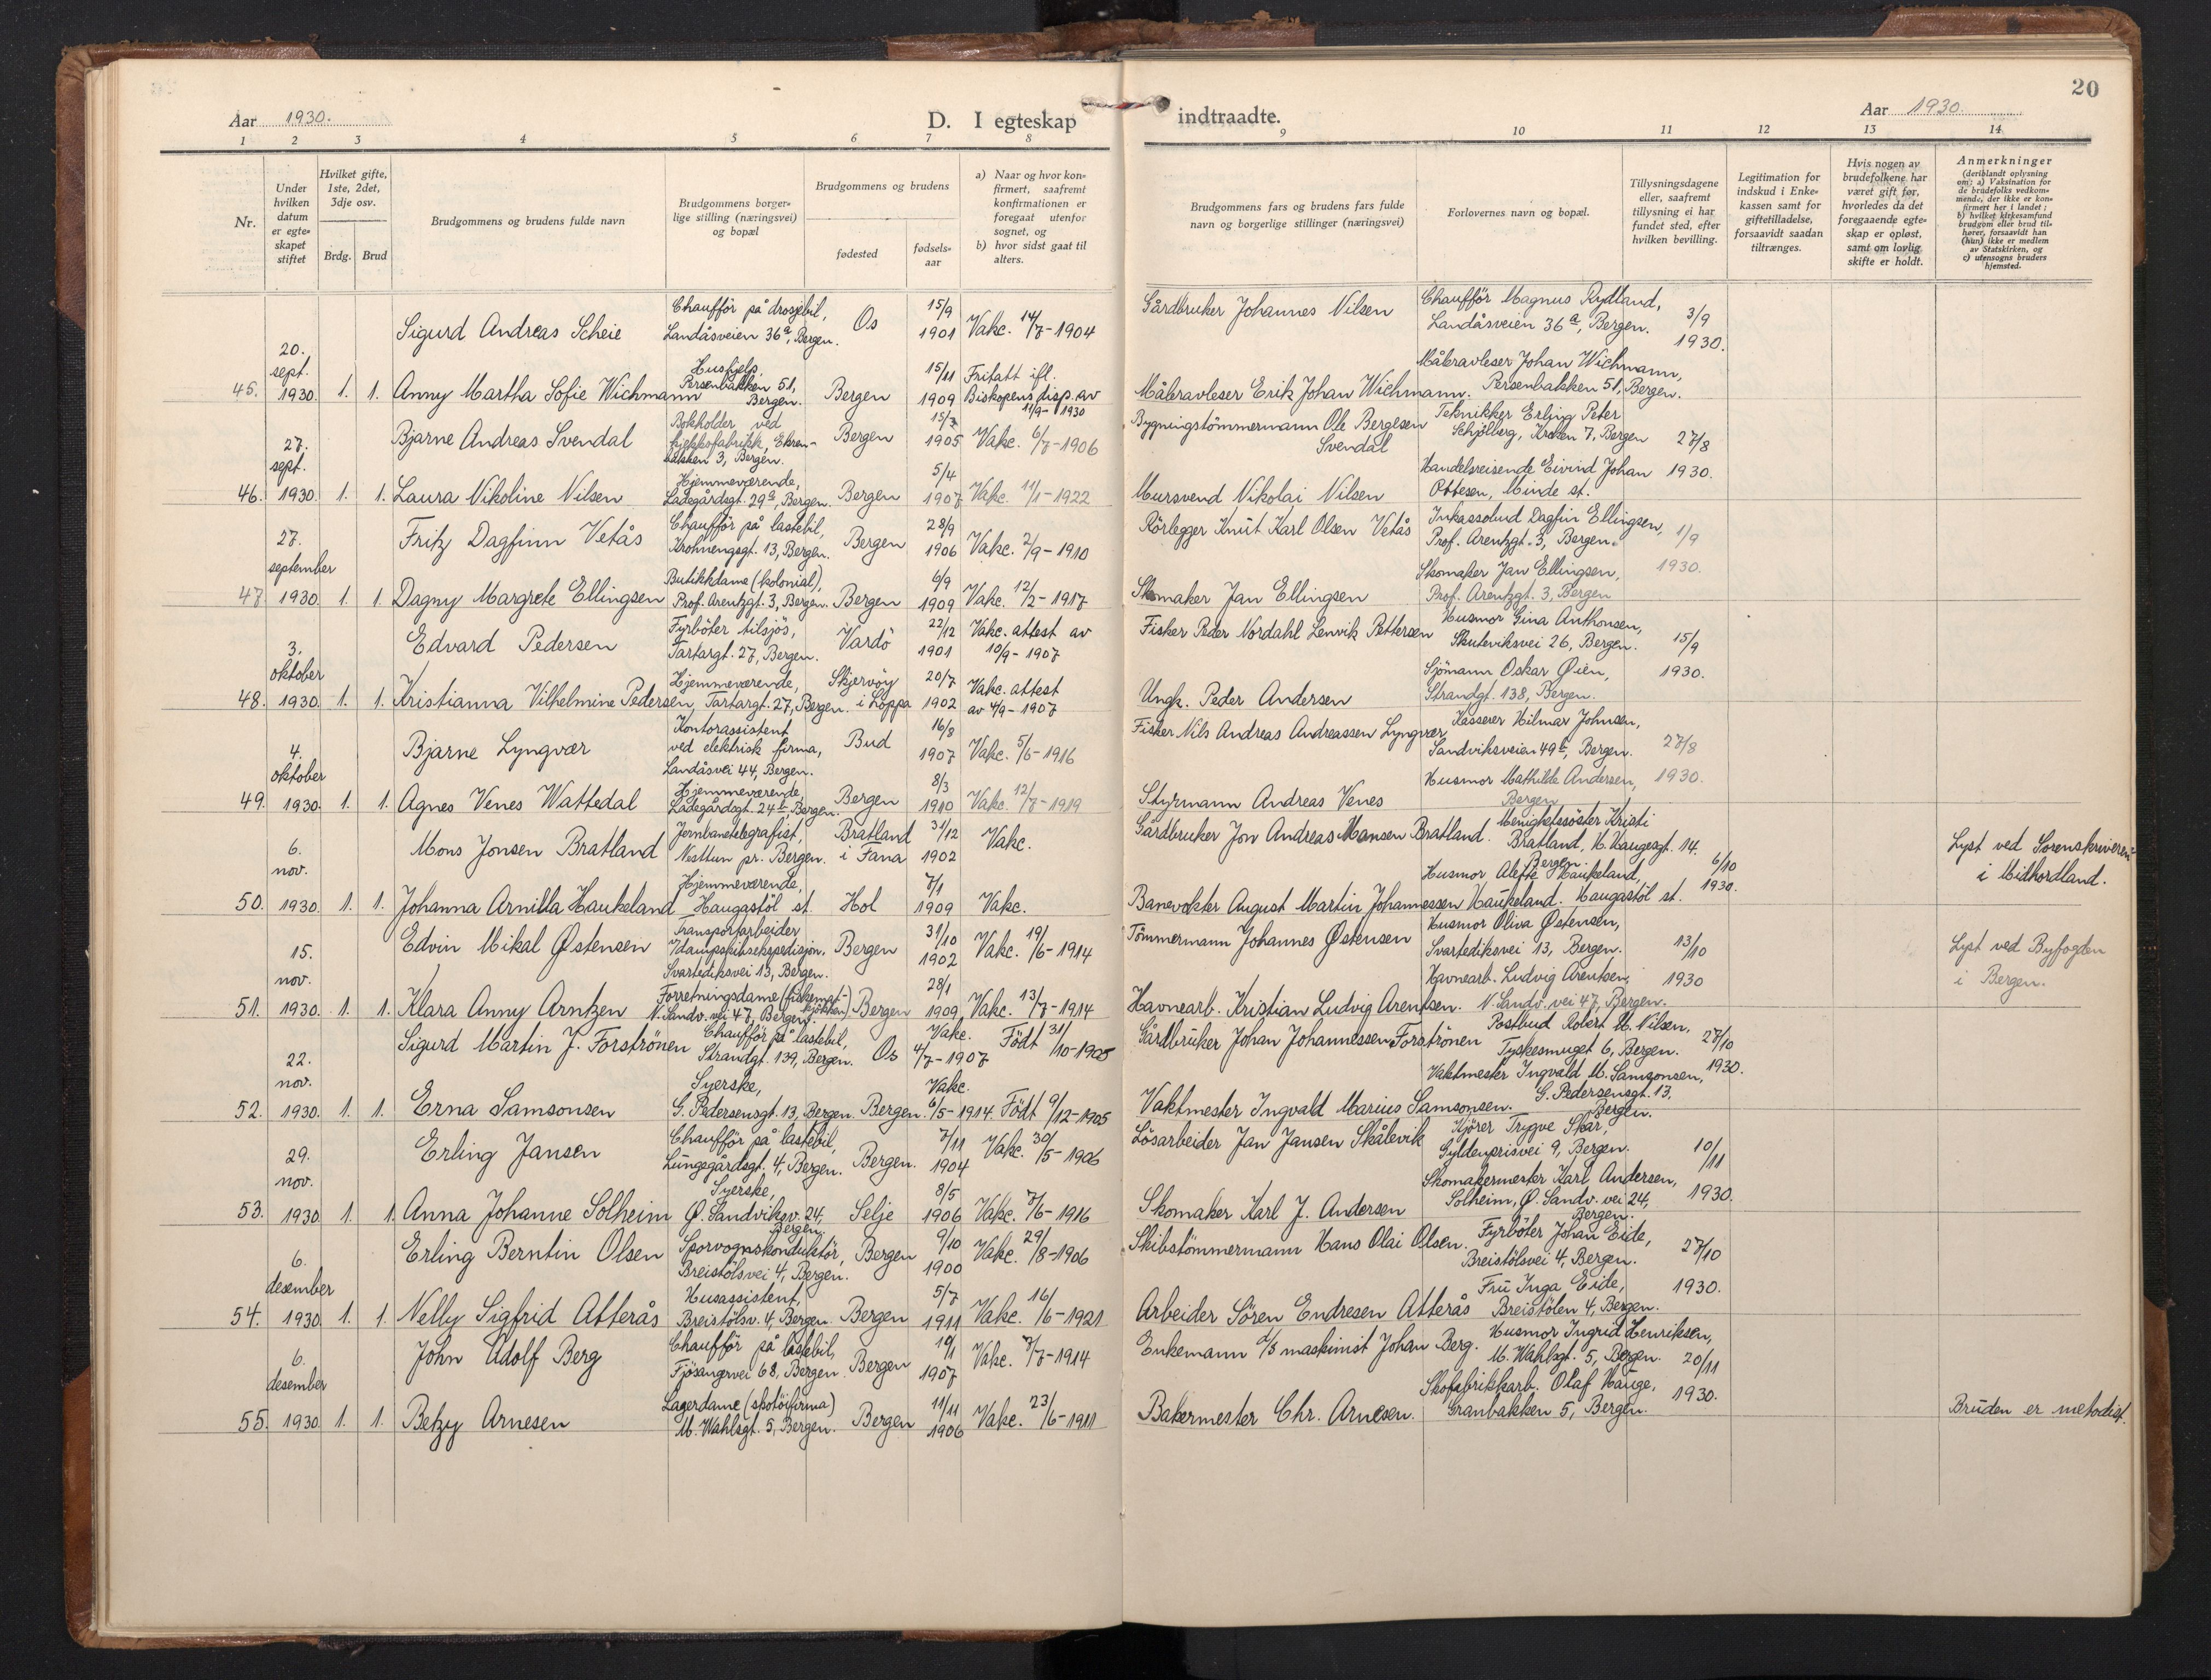 20
Aar 1930.
D. I egteskap indtraadte.
Aar 1930.
1 2 3 4 5 6 7 8 9 10 11 12 13 14
Nr.
Under hvilken datum er egteskapet stiftet
Hvilket gifte, 1ste, 2det, 3dje osv.
Brdg. Brud
Brudgommens og brudens fulde navn
Brudgommens borgerlige stilling (næringsvei) og bopæl
Brudgommens og brudens
fødested
fødselsaar
a) Naar og hvor konfirmert, saafremt konfirmationen er foregaat utenfor sognet, og
b) hvor sidst gaat til alters.
Brudgommens fars og brudens fars fulde navn og borgerlige stillinger (næringsvei)
Forlovernes navn og bopæl.
Tillysningsdagene eller, saafremt tillysning ei har fundet sted, efter hvilken bevilling.
Legitimation for indskud i Enkekassen samt for giftetilladelse, forsaavidt saadan tiltrænges.
Hvis nogen av brudefolkene har været gift før, hvorledes da det foregaaende egteskap er opløst, samt om lovlig skifte er holdt.
Anmerkninger (deriblandt oplysning om: a) Vaksination for de brudefolks vedkommende, der ikke er konfirmert her i landet; b) hvilket kirkesamfund brudgom eller brud tilhører, forsaavidt han (hun) ikke er medlem av Statskirken, og c) utensogns bruders hjemsted.
Sigurd Andreas Scheie Chaufför på drosjebil, Landåsveien 36a, Bergen. Os 15/9 1901 Vakc. 14/7-1904 Gårdbruker Johannes Nilsen Chaufför Magnus Rydland, Landåsveien 36a, Bergen. 3/9 1930.
45. 20. sept. 1930. 1. 1. Anny Martha Sofie Wichmann Hushjelp, Persenbakken 51, Bergen. Bergen 15/11 1909 Fritatt ifl. Biskopens disp. av 11/9-1930 Måleravleser Erik Johan Wichmann. Måleravleser Johan Wichmann, Persenbakken 51, Bergen.
Bjarne Andreas Svendal Bokholder ved 3, Bergen. Bergen 15/7 1905 Vakc. 6/7-1906 Bygningstömmermann Ole Bergesen Svendal Teknikker Erling Peter Schjølberg, Kroken 7, Bergen 27/8 1930.
46. 27. sept. 1930. 1. 1. Laura Nikoline Nilsen Hjemmeværende, Ladegårdsgt. 29a, Bergen. Bergen 5/4 1907 Vakc. 11/1-1922 Mursvend Nikolai Nilsen Handelsreisende Eivind Johan Ottesen, Minde st.
Fritz Dagfinn Vetås Chaufför på lastebil, Krohnengsgt. 13, Bergen. Bergen 28/9 1906 Vakc. 2/9-1910 Rörlegger Knut Karl Olsen Vetås Inkassobud Dagfin Ellingsen, Prof. Arentzgt. 3, Bergen. 1/9 1930.
47 27. september 1930. 1. 1. Dagny Margrete Ellingsen Butikkdame (kolonial), Prof. Arentzgt. 3, Bergen. Bergen 6/9 1909 Vakc. 12/2-1917 Skomaker Jan Ellingsen Skomaker Jan Ellingsen, Prof. Arentzgt. 3, Bergen
Edvard Pedersen Fyrböter tilsjös, Tartargt. 27, Bergen. Vardö 22/12 1901 Vakc. attest av 10/9-1907 Fisker Peder Nordahl Lenvik Pettersen Husmor Gina Anthonsen, Skuteviksvei 26, Bergen. 15/9 1930.
48. 3. oktober 1930. 1. 1. Kristianna Vilhelmine Pedersen, Hjemmeværende, Tartargt. 27, Bergen. Skjervöy i Loppa 20/7 1902 Vakc. attest av 4/9-1907 Ungk. Peder Andersen Sjömann Oskar Øien, Strandgt. 138, Bergen.
Bjarne Lyngvær Kontorassistent ved elektrisk firma, Landåsvei 44, Bergen. Bud 16/8 1907 Vakc. 5/6-1916 Fisker Nils Andreas Andreassen Lyngvær Kasserer Hilmar Johnsen, Sandviksveien 49b, Bergen. 27/8 1930.
49. 4. oktober 1930. 1. 1. Agnes Venes Wattedal Hjemmeværende, Ladegårdsgt. 24b, Bergen. Bergen 8/3 1910 Vakc. 12/7-1919 Styrmann Andreas Venes Husmor Mathilde Andersen, Bergen
Mons Jonsen Bratland Jernbanetelegrafist, Nesttun pr. Bergen. Bratland i Fana 31/12 1902 Vakc. Gårdbruker Jon Andreas Monsen Bratland. Menighetssöster Kristi Bratland, H. Haugesgt. 14. Bergen. 6/10 1930. Lyst ved Sorenskriveren i Midhordland.
50. 6. nov. 1930. 1. 1. Johanna Arnilla Haukeland Hjemmeværende, Haugastöl st. Hol 7/1 1909 Vakc. Banevokter August Martin Johannessen Haukeland. Husmor Alette Haukeland, Haugastöl st.
Edvin Mikal Østensen Transportarbeider i dampskibsekspedisjon. Svartediksvei 13, Bergen. Bergen 31/10 1902 Vakc. 19/6-1914 Tömmermann Johannes Østensen Husmor Oliva Østensen, Svartediksvei 13, Bergen. 13/10 1930 Lyst ved Byfogden i Bergen.
51. 15. nov. 1930. 1. 1. Klara Anny Arntzen Forretningsdame (fiskemat-kjökken) N. Sandv. vei 47, Bergen. Bergen 28/1 1909 Vakc. 13/7-1914 Havnearb. Kristian Ludvig Arentsen. Havnearb. Ludvig Arentsen, N. Sandv. vei 47, Bergen.
Sigurd Martin J. Forströnen Chaufför på lastebil, Strandgt. 139, Bergen. Os Vakc. 4/7-1907 Födt 31/10-1905 Gårdbruker Johan Johannessen Forströnen Postbud Robert M. Nilsen, Tyskesmuget 6, Bergen. 27/10 1930.
52. 22. nov. 1930. 1. 1. Erna Samsonsen Syerske, G. Pedersensgt. 13, Bergen. Bergen. Vakc. 6/5-1914. Födt 9/12-1905 Vaktmester Ingvald Marius Samsonsen. Vaktmester Ingvald M. Samsonsen, G. Pedersensgt. 13, Bergen.
Erling Jansen Chaufför på lastebil, Lungegårdsgt. 4, Bergen. Bergen. 7/11 1904 Vakc. 30/5-1906 Lösarbeider Jan Jansen Skålevik Kjörer Trygve Skår, Gyldenprisvei 9, Bergen. 10/11 1930.
53. 29. nov. 1930 1. 1. Anna Johanne Solheim Syerske, Ø. Sandviksv. 24, Bergen. Selje 8/5 1906 Vakc. 7/6-1916 Skomaker Karl J. Andersen Skomakermester Karl Andersen, Solheim, Ø. Sandv. vei 24, Bergen.
Erling Berntin Olsen Sporvognskonduktör, Breistölsvei 4, Bergen. Bergen 9/10 1900 Vakc. 29/8-1906 Skibstömmermann Hans Olai Olsen. Fyrböter Johan Eide, Breistölsvei 4, Bergen. 27/10 1930.
54. 6. desember 1930. 1. 1. Nelly Sigfrid Atterås Husassistent, Breistölsv. 4, Bergen. Bergen 5/7 1911 Vakc. 16/6-1921 Arbeider Sören Endresen Atterås Fru Inga Eide, Breistölen 4, Bergen.
John Adolf Berg Chaufför på lastebil, Fjösangervei 68, Bergen. Bergen 10/1 1907 Vakc. 7/7-1914 Enkemann maskinist Johan Berg. Husmor Ingrid Henriksen, M. Wahlsgt. 5, Bergen. 20/11 1930.
55. 6. desember 1930. 1. 1. Betzy Arnesen Lagerdame (skotöifirma) M. Wahlsgt. 5, Bergen. Bergen 11/11 1906 Vakc. 23/6-1911 Bakermester Chr. Arnesen. Skofabrikkarb. Olaf Hauge, Granbakken 5, Bergen. Bruden er metodist.